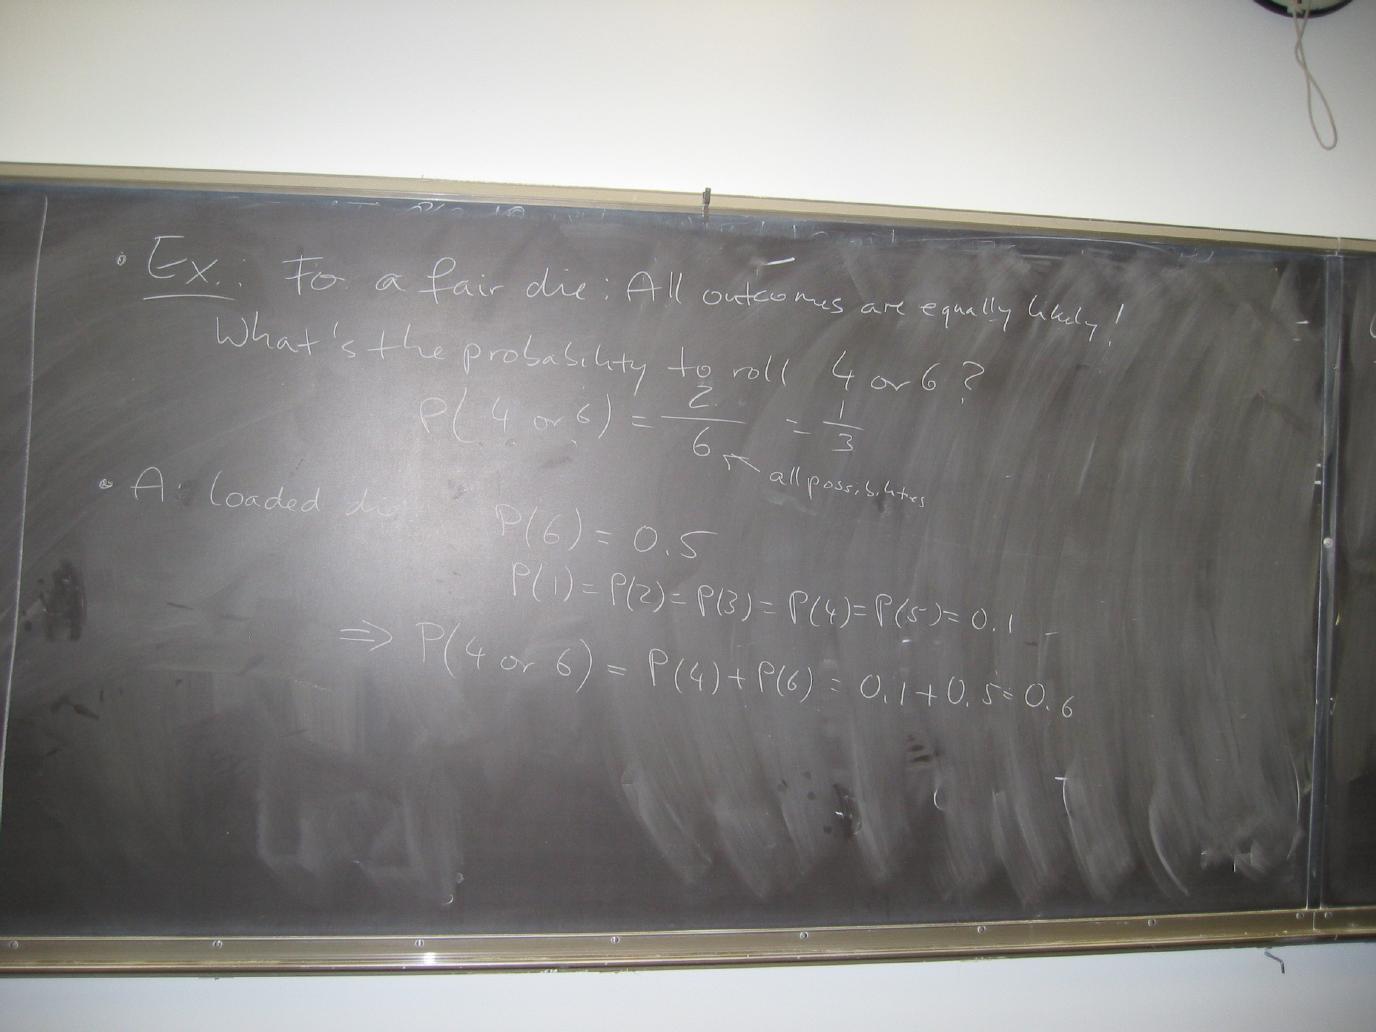 • Ex.: For a fair die: All outcomes are equally likely!
What's the probability to roll 4 or 6?
P(4 or 6) = 2/6 = 1/3
all possibilities
• A: Loaded die
P(6) = 0.5
P(1) = P(2) = P(3) = P(4) = P(5) = 0.1
⇒ P(4 or 6) = P(4) + P(6) = 0.1 + 0.5 = 0.6